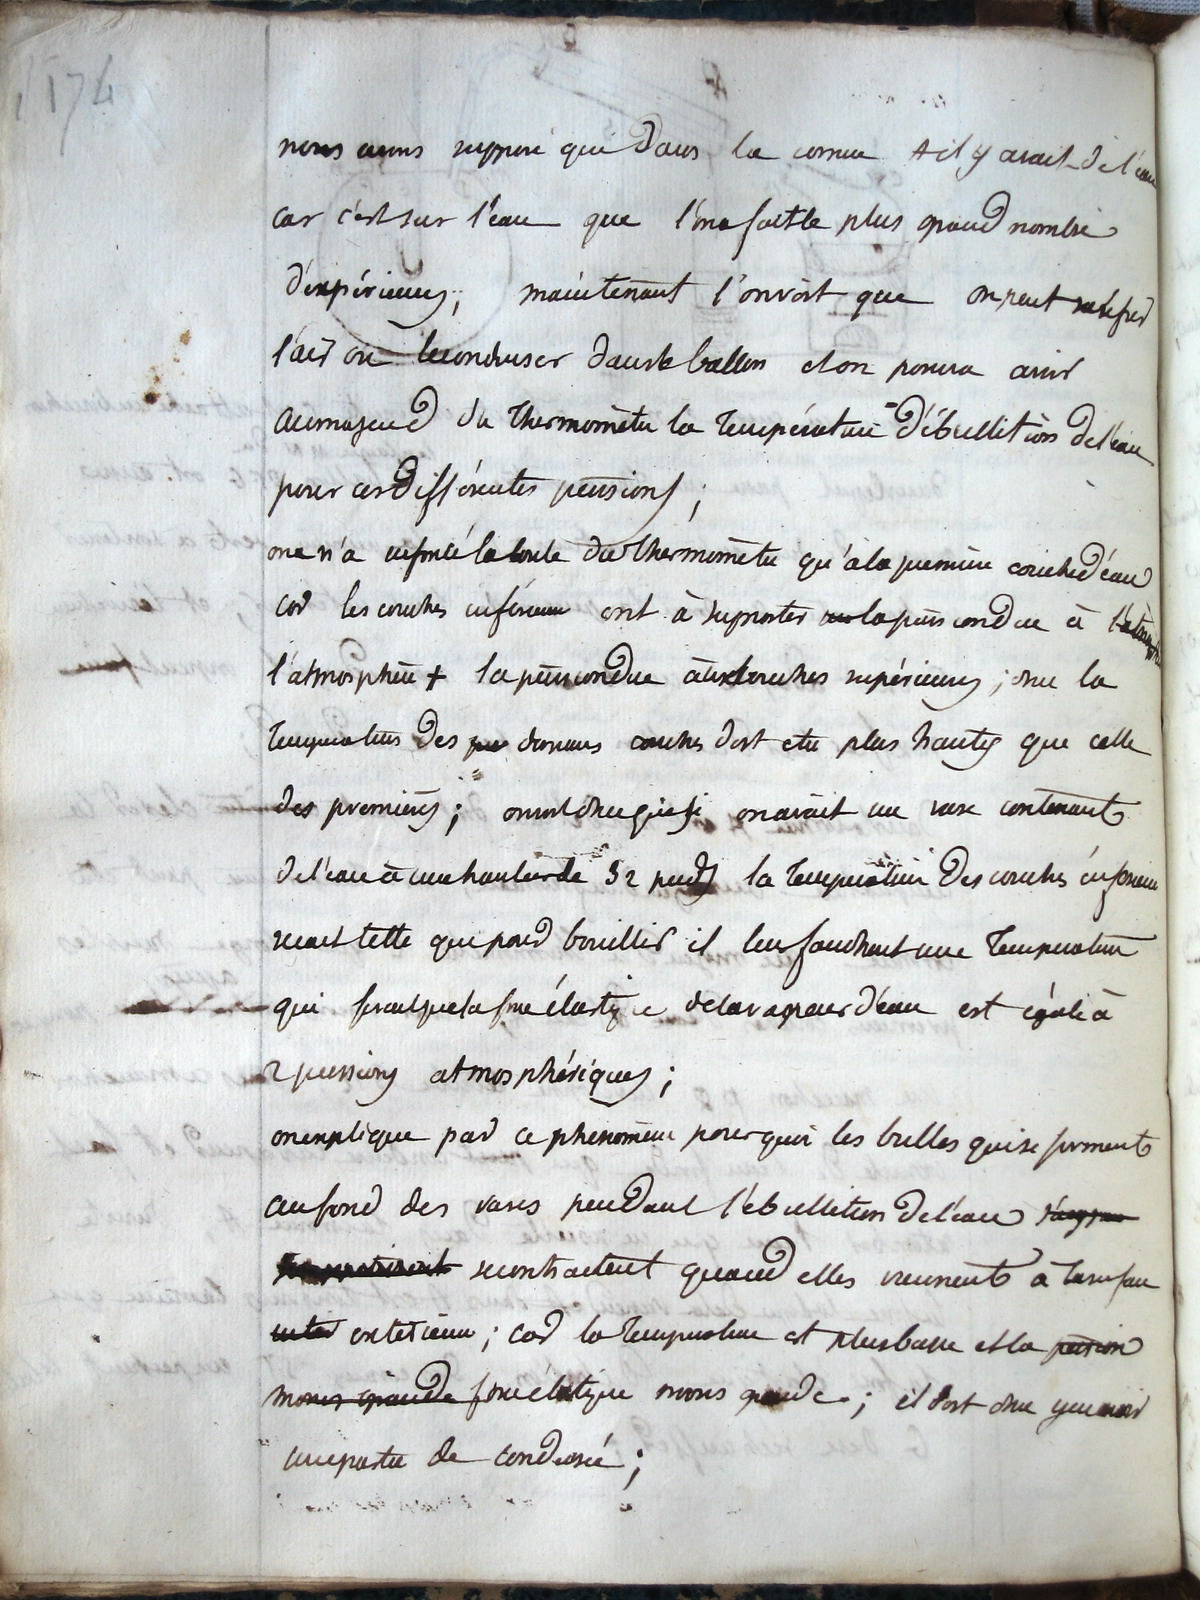 174
nous avons supposé que dans la cornue A il y avait de l'eau
car c'est sur l'eau que l'on a fait le plus grand nombre
d'expériences; maintenant l'on voit que on peut raréfier
l'air ou le condenser dans le ballon et on pourra avoir
au moyen du thermomètre la température d'ébullition de l'eau
pour ces différentes pressions;
on n'a enfoncé la boule du thermomètre qu'à la première couche d'eau
car les couches inférieures ont à supporter la pression due à
l'atmosphère + la pression due aux couches supérieures; donc la
température des dernières couches doit être plus hautes que celle
des premières; on voit donc que si on avait un vase contenant
de l'eau à une hauteur de 32 pieds la température des couches inférieures
serait telle que pour bouillir il leur faudrait une température
qui ferait que la force élastique de la vapeur d'eau est égale à
2 pressions atmosphériques;
on explique par ce phénomène pourquoi les bulles qui se forment
au fond des vases pendant l'ébullition de l'eau
se contractent quand elles viennent à la surface
extérieure; car la température est plus basse et la pression
moins grande force élastique moins grande; il doit donc y en avoir
une partie de condensée;